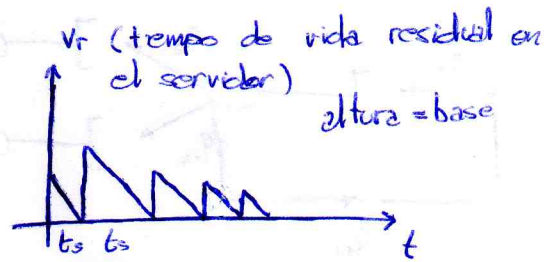 Vr (tiempo de vida residual en
el servidor)
altura = base
ts ts
t